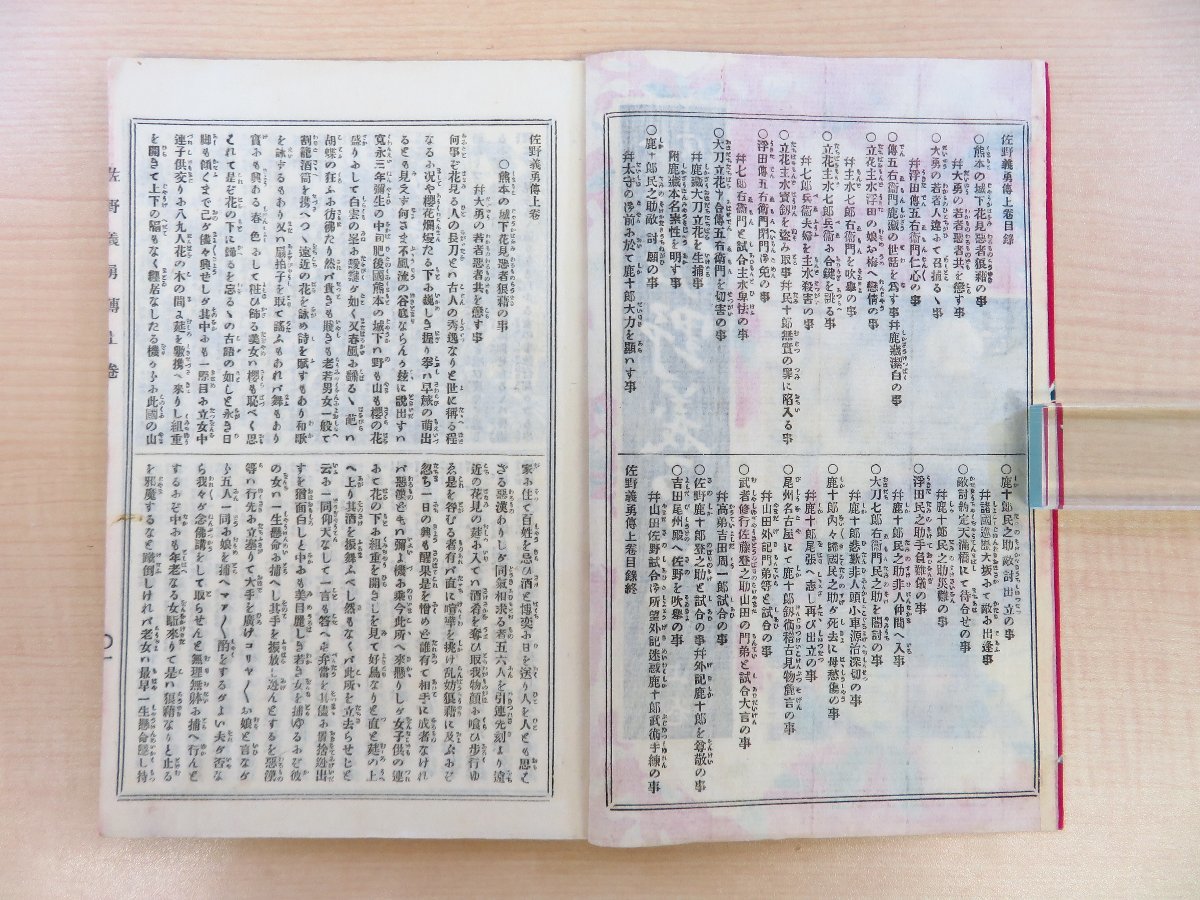 佐野義勇傳上卷目録
○熊本の城下花見惡者狼藉の事
幷大勇の若者惡者共を懲す事
○大勇の若者人違ふて召捕るゝ事
幷浮田傳五右衛門仁心の事
○傳五右衛門鹿藏の世話を為す事幷鹿藏潔白の事
○立花主水浮田の娘お梅へ戀情の事
幷主水七郎右衛門を吹擧の事
○立花主水七郎兵衛お合鍵を誂る事
幷七郎兵衛夫婦を主水殺害の事
○立花主水寶劔を盗み取事幷民十郎無實の罪に陷入る事
○浮田傳五右衛門閉門御免の事
幷七郎右衛門と試合主水卑怯の事
○大刀立花ヶ合傳五右衛門を切害の事
幷鹿藏大刀立花を生捕事
附鹿藏本名素性を明す事
○鹿十郎民之助敵討願の事
幷太守の御前お於て鹿十郎大力を顯ハす事
○鹿十郎民之助敵討出立の事
幷諸國巡歴大坂おて敵お出逢事
○敵討約定天滿橋にて待合せの事
幷鹿十郎民之助災難の事
○浮田民之助手負難儀の事
幷鹿十郎民之助非人仲間へ入事
○大刀七郎右衛門民之助を闇討の事
幷鹿十郎愁歎非人頭小車源治深切の事
○鹿十郎内々歸國民之助ゟ死去に母愁傷の事
幷鹿十郎尾張へ志し再び出立の事
○尾州名古屋にて鹿十郎劔術稽古見物廣言の事
幷山田外記門弟等と試合の事
○武者修行佐藤登之助山田の門弟と試合大言の事
幷高弟吉田周一郎試合の事
○佐野鹿十郎登之助と試合の事幷外記鹿十郎を尊敬の事
○吉田尾州殿へ佐野を吹擧の事
幷山田佐野試合御所望外記迷惑鹿十郎武術手練の事
佐野義勇傳上卷目録終
佐野義勇傳上卷
○熊本の城下花見惡者狼藉の事
幷大勇の若者惡者共を懲す事
何事ぞ花見る人の長刀とハ古人の秀逸なりと世に稱る程
なるお况や櫻花爛熳たる下お醜しき握り拳ハ早蕨の萌出
るとも見えず何さま不風流の谷底ならんう玆に說出すハ
寛永三年彌生の中旬肥後國熊本の城下ハ野も山も櫻の花
盛りおして白雲の峯お靉靆ゟ如く又春風お飜るゝ葩ハ
胡蝶の狂ふお彷彿たり然れバ貴きも賤きも老若男女一般て
割籠酒筒を携へつゝ遠近の花を詠め詩を賦すもあり和歌
を詠ずるもあり又ハ扇拍子を取て謠ふもあれバ舞もあり
實お尤も興ある春の色おして粧ひ飾る美女ハ櫻も恥べく思
これて是ぞ花の下に歸るを忘るゝの古語の如しと永き日
脚も傾くまで己ゟ儘々興せしゟ其中おも一際目お立女中
連子供交りお八九人花の木の間ゟ莚を敷携へ來りし組重
を開きて上下の隔もなく難居なしたる機うらお此國の山
家お住て百姓を忌ひ酒と博奕お日を送り人を人とも思ハ
ざる惡漢ありしゟ同氣相求る者五六人を引連先刻より遠
近の花見の莚お入て酒肴を奪ひ取我物顏お喰ひ步行ゆ
ゑ是を咎むる者有バ直に喧嘩を挑け乱妨狼藉に及ぶおぞ
忽ち一日の興も醒果是を憎めど誰有て相手に成者なけれ
バ惡漢どもハ彌よ機お乘今此所へ來懸りしゟ女子供の連
おて花の下お組重を開きしを見て好鳥なりと直と莚の上
へ上り其酒を振舞ふべし然もなくバ此所を立去らせじと
云お一同仰天なして一言も答へず弁當も其儘お置捨迯出
すを猶面白しと中おも美目麗しき若き女を捕ゆるおぞ彼
の女ハ一生懸命お捕へし其手を振放し迯んとするを惡漢
等ハ行先お立塞り大手を廣げコリヤ〳〵お娘と言なゟ
ら五人一同お娘を捕へマア〳〵酌をするゟよい夫ゟ否な
ら我々ゟ念佛講おして取らせんと無理無躰お捕へ行んと
するおぞ中おも年老なる女駈來りて是ハ狼藉なりと止る
を邪魔するなと蹴倒しければ老女ハ最早一生懸命懸し持
佐野義勇傳上卷
○一